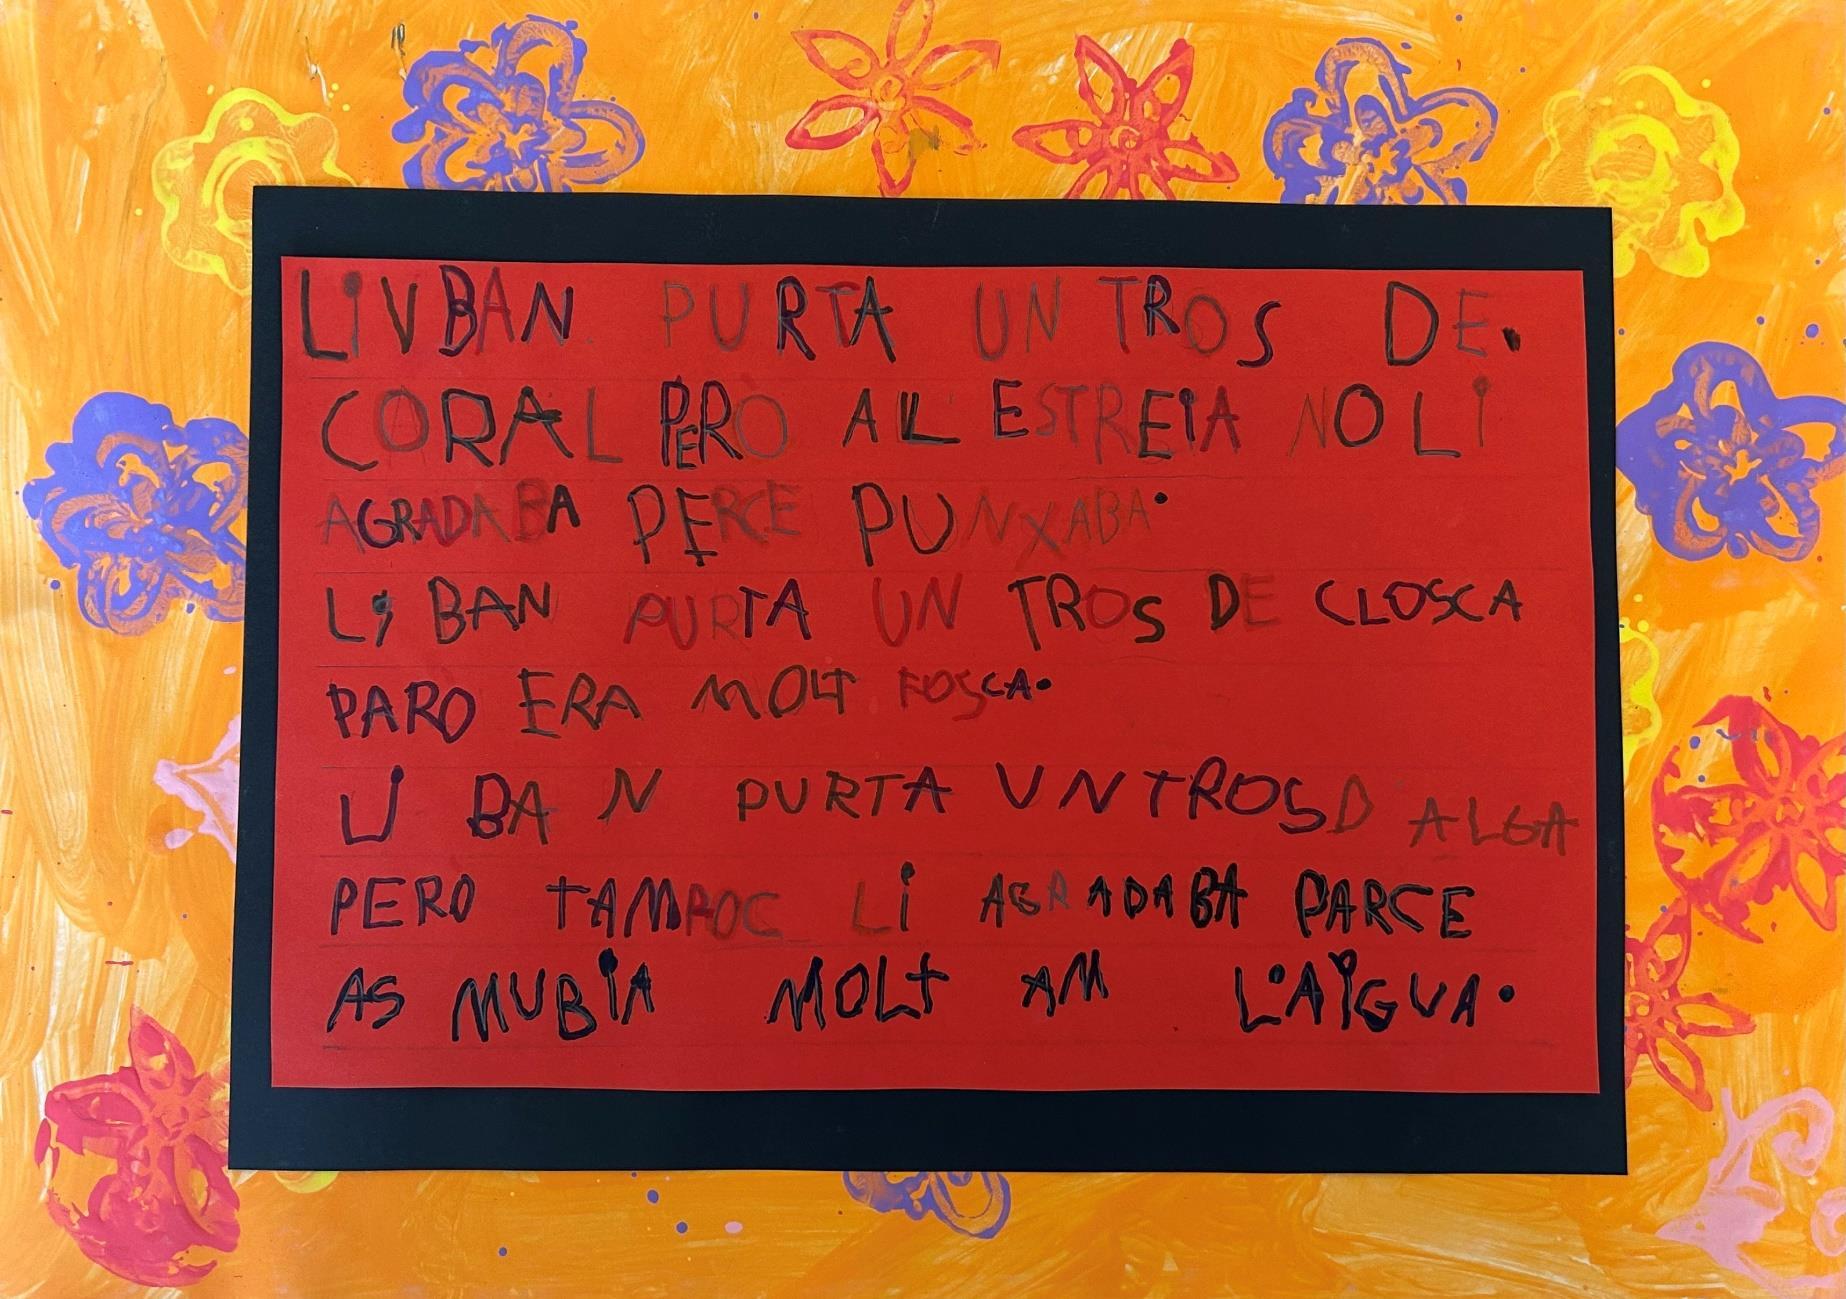 LIVBAN PURTA UN TROS DE.
CORAL PERÒ A LL' ESTREIA NO LI
AGRADABA PERCE PUNXABA.
LI BAN PURTA UN TROS DE CLOSCA
PARO ERA MOLT FOSCA.
LI BA N PURTA UN TROS D ALGA
PERÒ TAMPOC LI AGRADABA PARCE
AS MUBIA MOLT AM L'AIGUA.